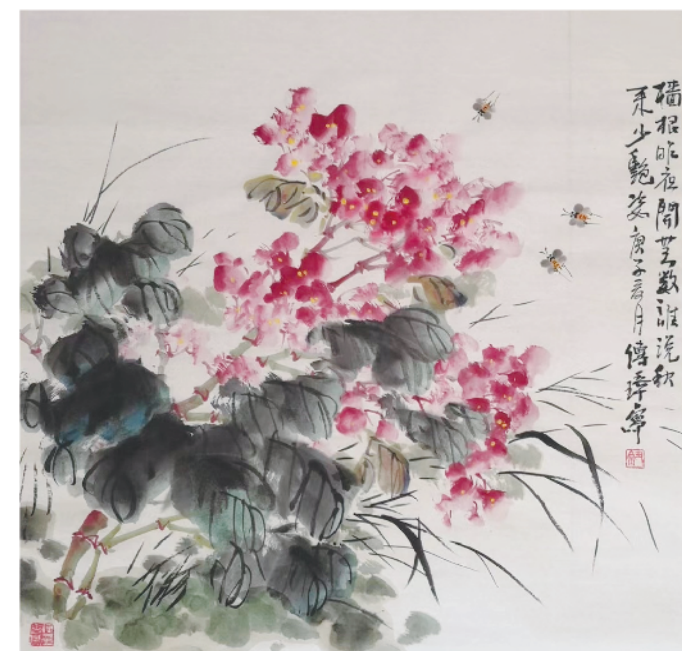 墙根昨夜開無数誰説秋
来少艷姿庚子六月傅璋宰